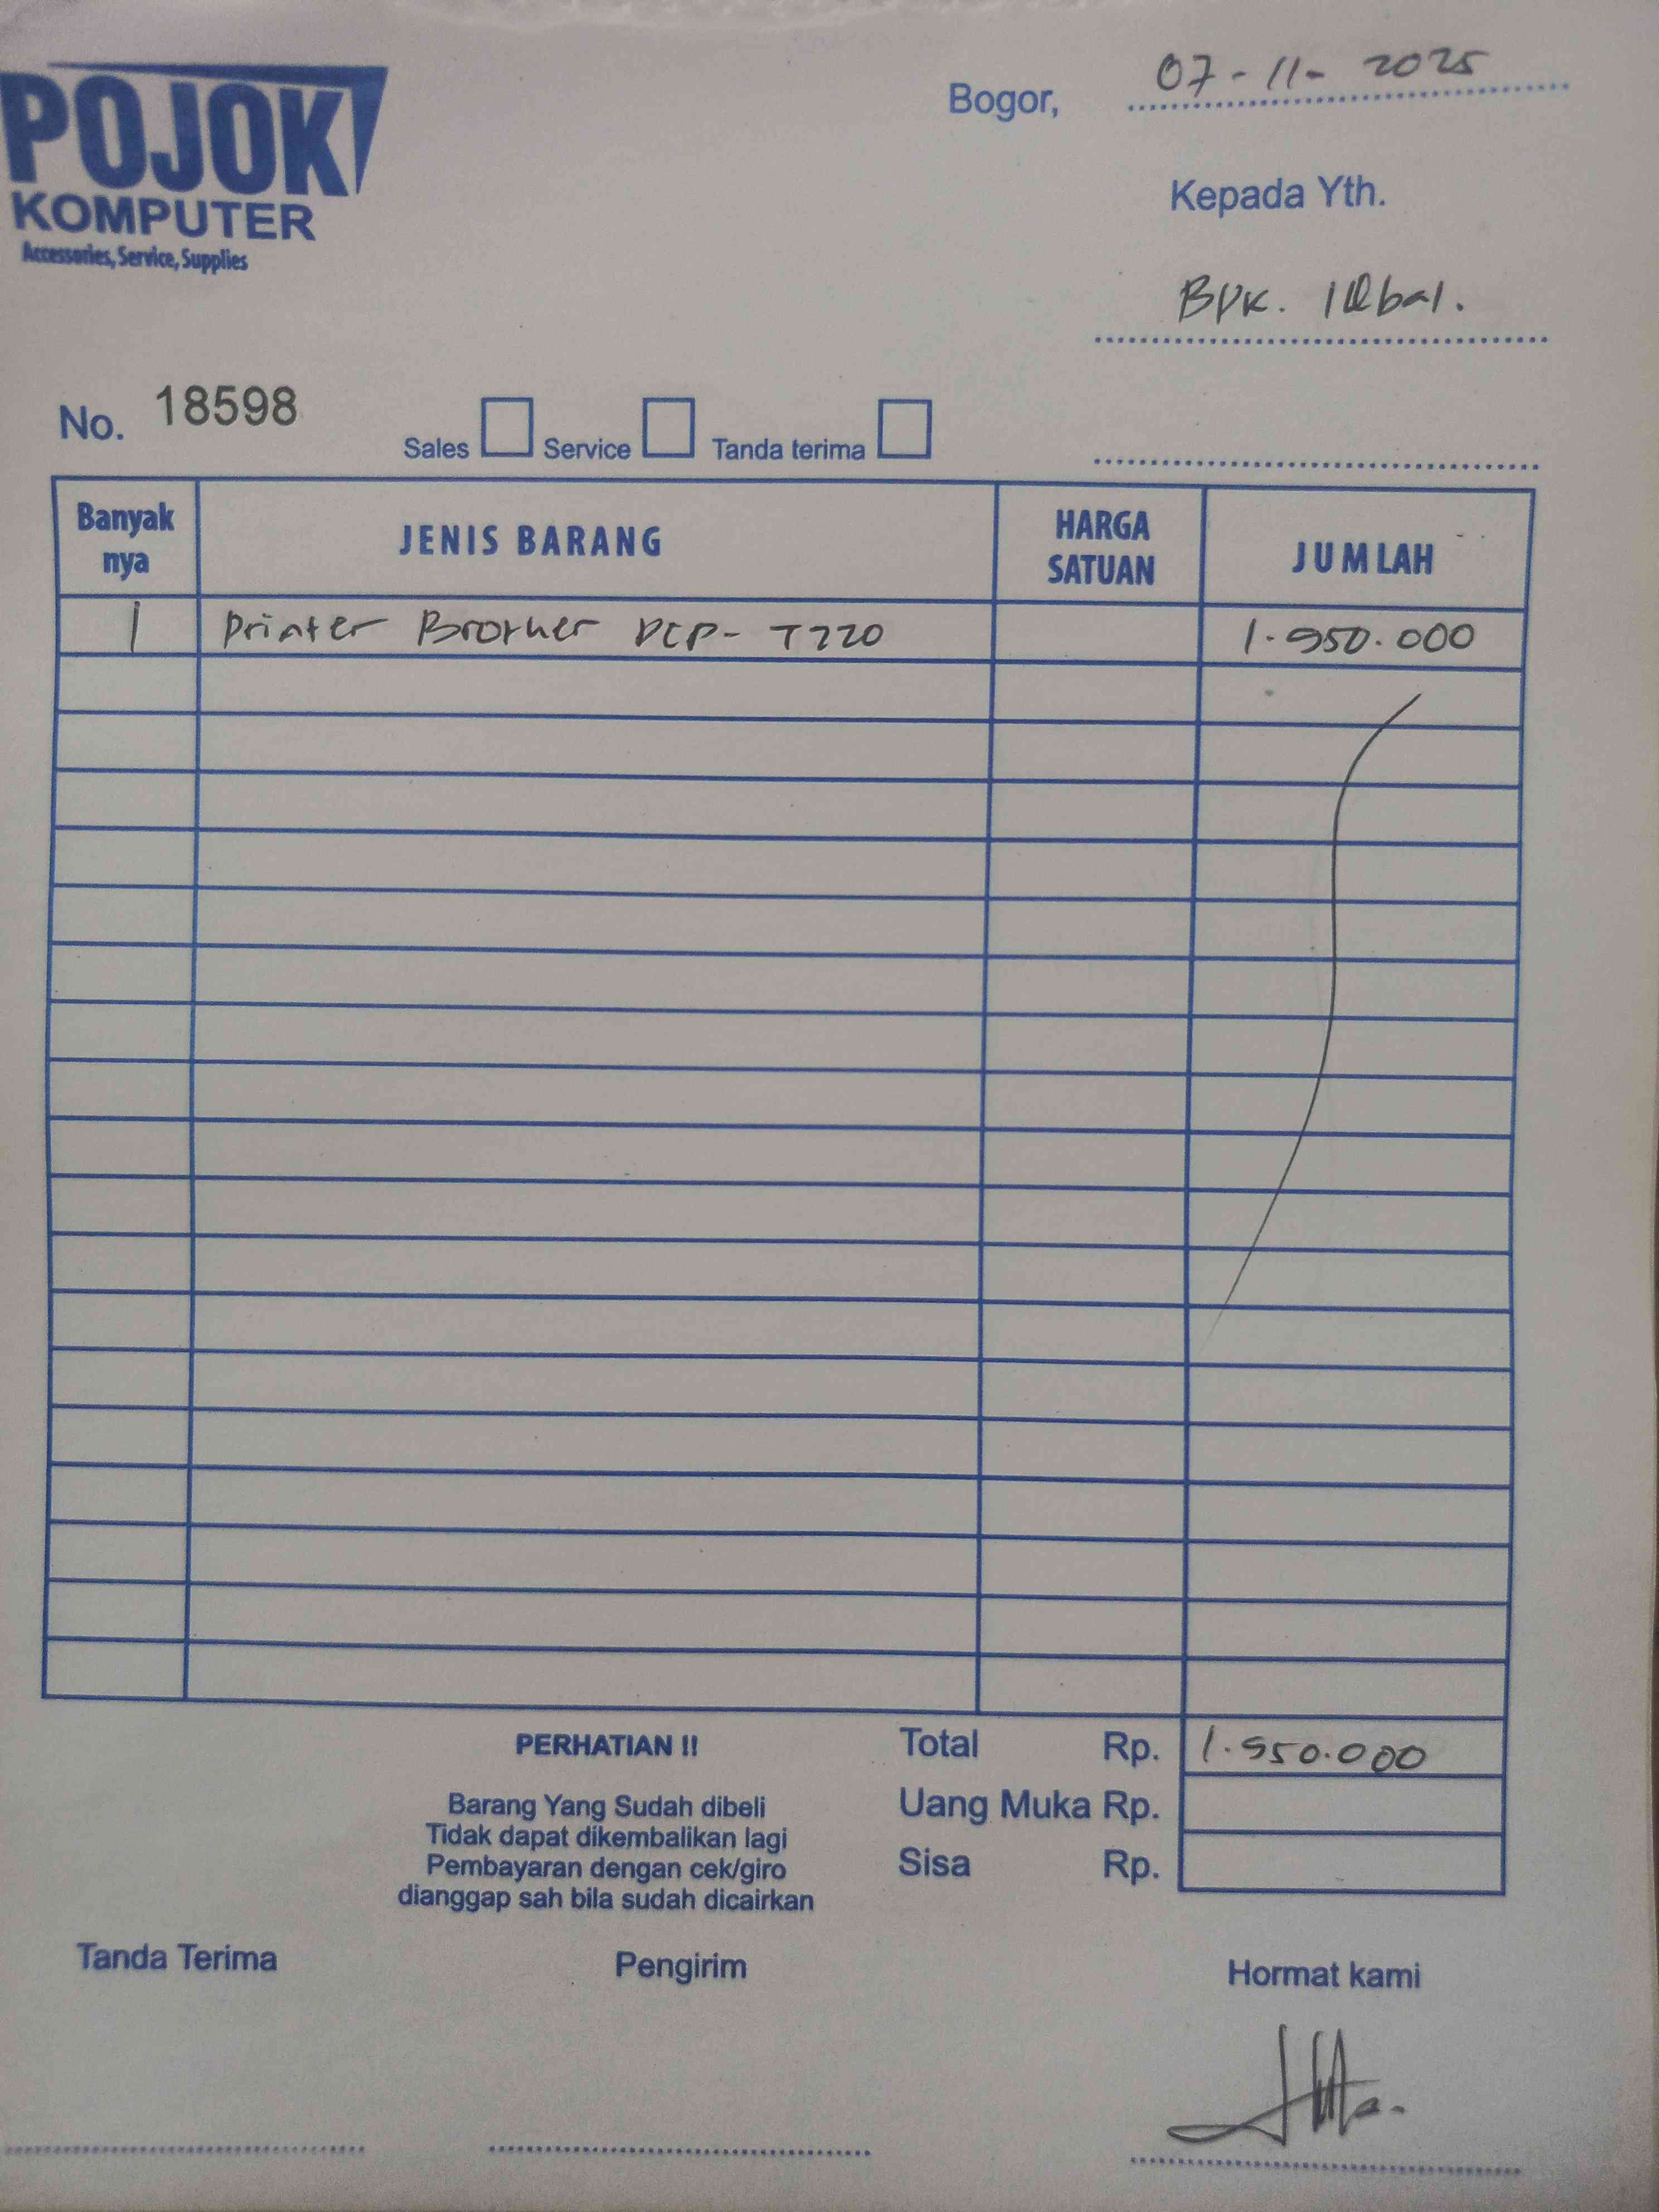 POJOK
KOMPUTER
Accessories, Service, Supplies
Bogor, 07-11-2025
Kepada Yth.
Bpk. IQbal.
No. 18598
Sales Service Tanda terima
Banyak nya JENIS BARANG HARGA SATUAN JUMLAH
1 Printer Brother DCP-T220 1.950.000
PERHATIAN !!
Barang Yang Sudah dibeli
Tidak dapat dikembalikan lagi
Pembayaran dengan cek/giro
dianggap sah bila sudah dicairkan
Total Rp. 1.950.000
Uang Muka Rp.
Sisa Rp.
Tanda Terima Pengirim Hormat kami